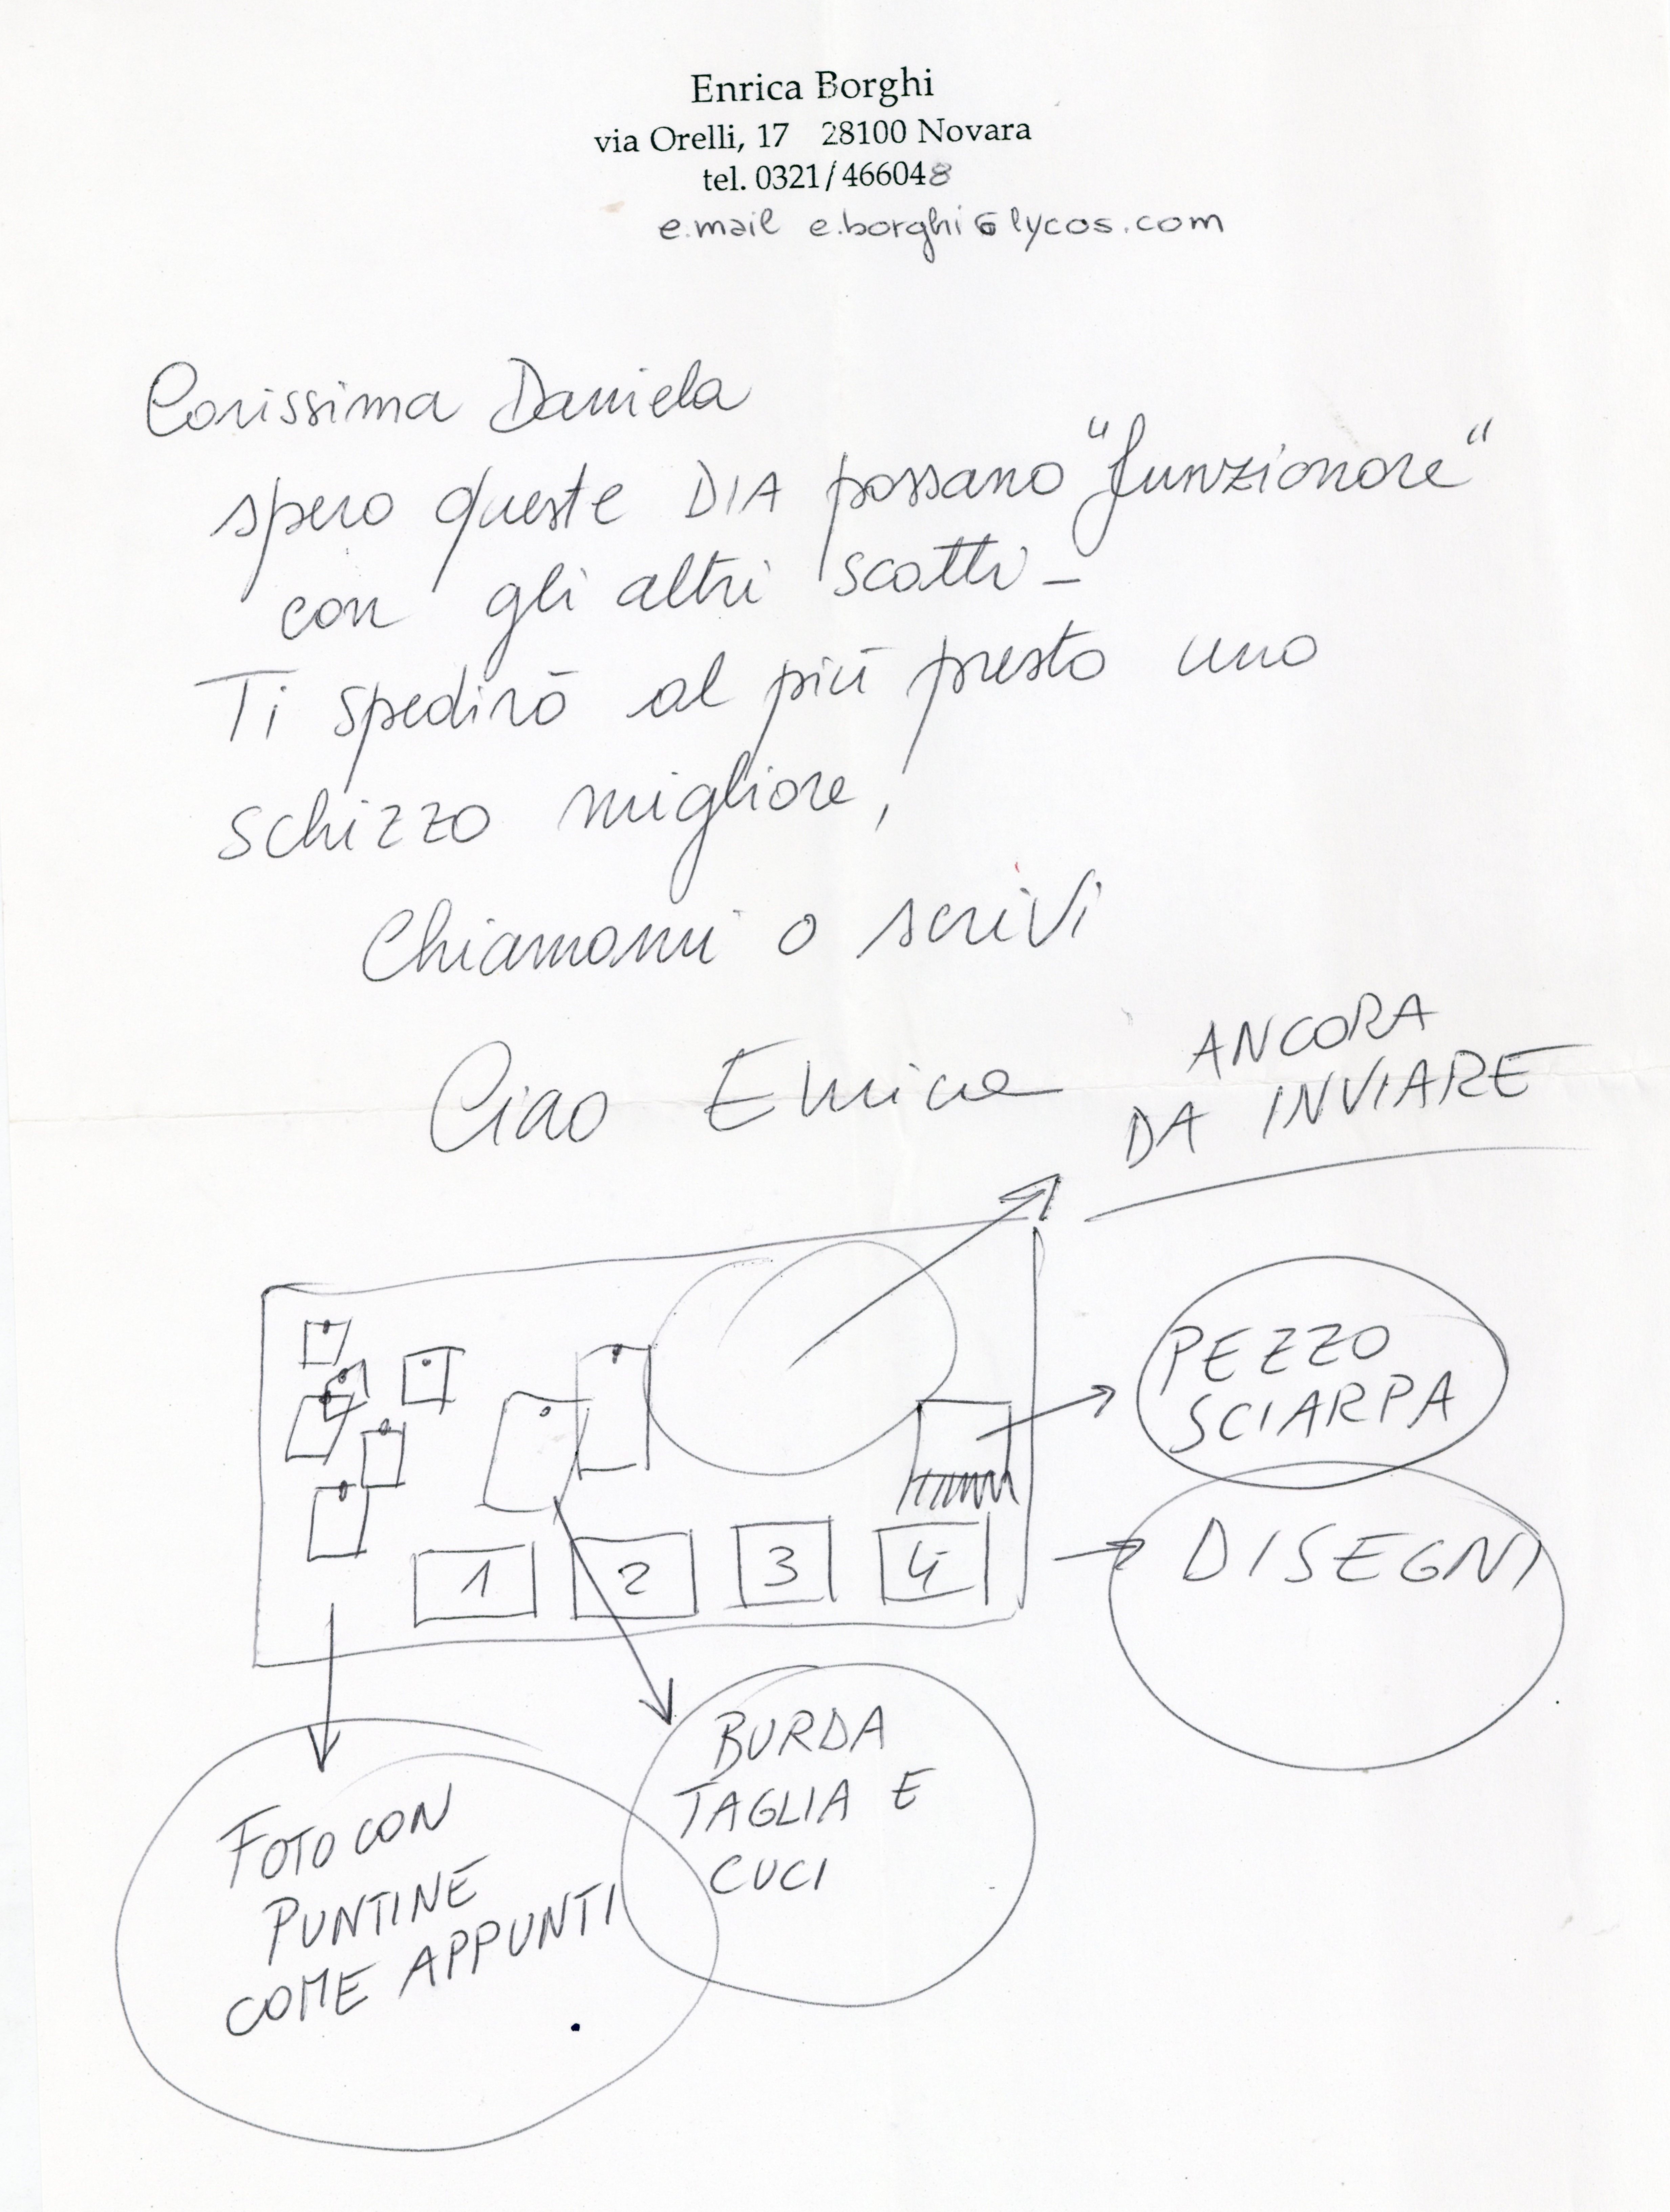 Enrica Borghi
via Orelli, 17 28100 Novara
tel. 0321/466048
e.mail e.borghi@lycos.com
Carissima Daniela
spero queste DIA possano "funzionare"
con gli altri scatti -
Ti spedirò al più presto uno
schizzo migliore,
Chiamami o scrivi
Ciao Enrica
ANCORA
DA INVIARE
PEZZO
SCIARPA
1 2 3 4
DISEGNI
BURDA
TAGLIA E
CUCI
FOTO CON
PUNTINE
COME APPUNTI